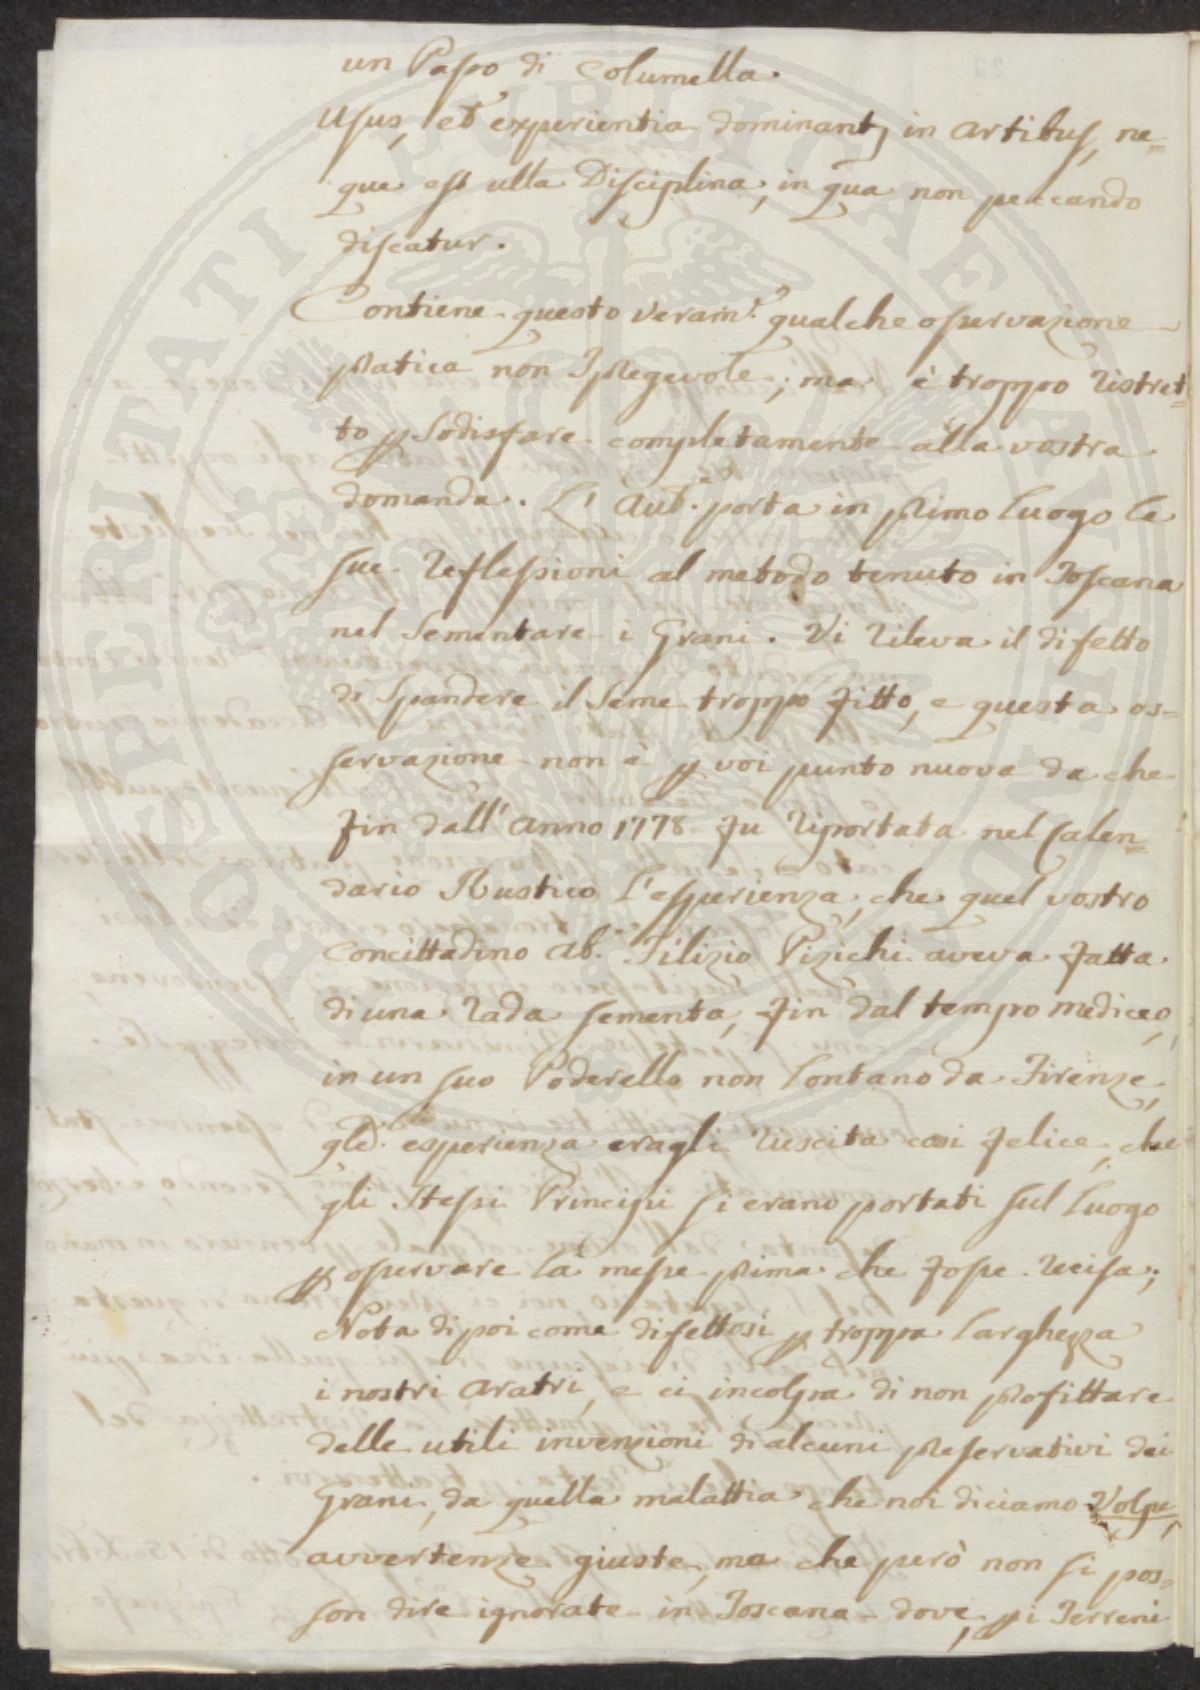 un Passo di Columella.
Usus, et experientia dominantʒ in artibus, ne=
que est ulla Disciplina, in qua non peccando
discatur.
Contiene questo veram.e qualche osservazione
pratica non spregevole; ma è troppo ristret=
to p sodisfare completamente alla vostra
domanda. L' Aut.e porta in primo luogo le
sue reflessioni al metodo tenuto in Toscana
nel sementare i Grani. Vi rileva il difetto
di spandere il seme troppo fitto, e questa os=
servazione non è p voi punto nuova da che
fin dall' anno 1778 fu riportata nel Calen=
dario Rustico l'esperienza, che quel vostro
Concittadino Ab.e Filizio Pizichi aveva fatta
di una rada sementa, fin dal tempo mediceo,
in un suo Poderello non lontano da Firenze,
qle. esperienza eragli riescita così felice, che
gli stessi Principi si erano portati sul luogo
p osservare la messe prima che fosse recisa;
Nota dipoi come difettosi p troppa larghezza
i nostri aratri, e ci incolpa di non profittare
delle utili invenzioni di alcuni preservativi dei
Grani, da quella malattia che noi diciamo Volpe,
avvertenze giuste, ma che però non si pos=
son dire ignorate in Toscana dove, p i Terreni
PUBLICAE AUGENDAE PROSPERITATI